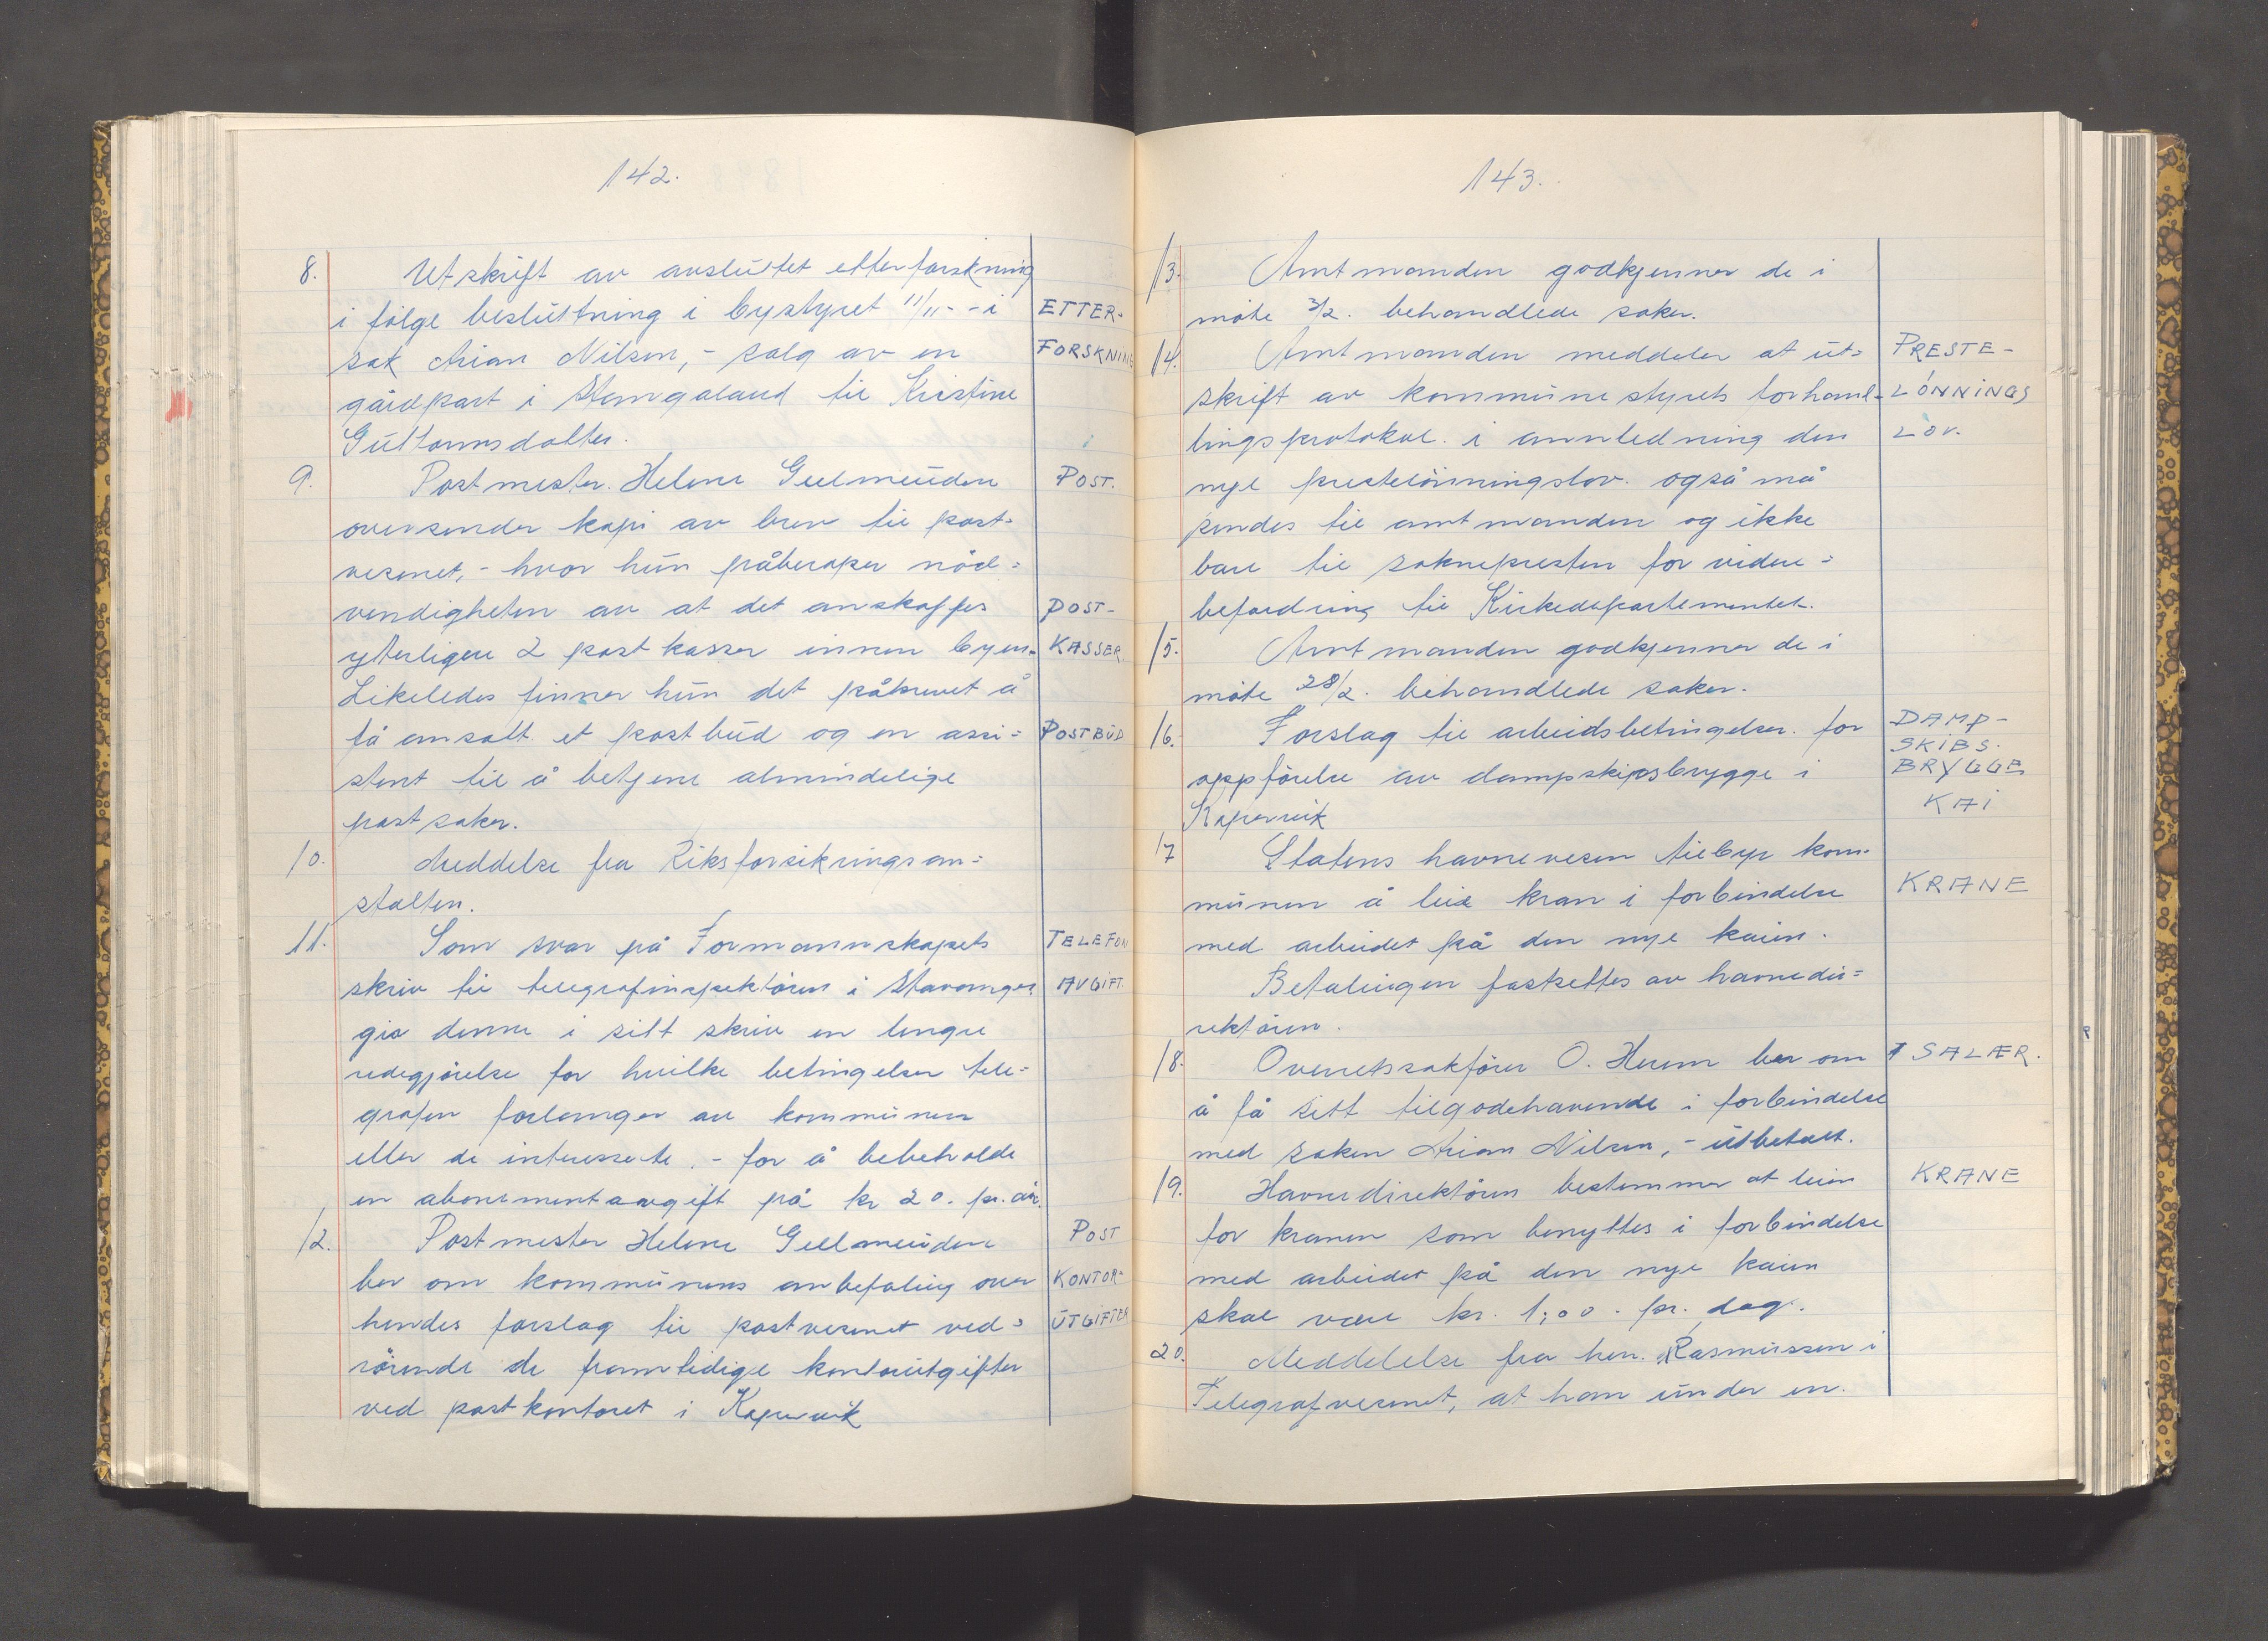 142.
8. Utskrift av avsluttet etterforskning
i følge beslutning i bystyret 11/11 - - i ETTER-
sak Arian Nilsen, - salg av en FORSKNING
gårdpart i Stangaland til Kristine
Guttormsdatter.
9. Postmester Helene Geelmeuden POST.
oversender kopi av brev til post=
vesenet, - hvor hun påberoper nød=
vendigheten av at det anskaffes POST-
ytterligere 2 postkasser innen byen. KASSER.
Likeledes finner hun det påkrevet å
få ansatt et postbud og en assi= POSTBUD
stent til å betjene almindelige
postsaker.
10. Meddelse fra Riksforsikringsan=
stalten.
11. Som svar på Formannskapets TELEFON
skriv til telegrafinspektøren i Stavanger AVGIFT.
gir denne i sitt skriv en lengre
redegjørelse for hvilke betingelser tele=
grafen forlanger av kommunen
eller de interesserte. - for å bebeholde
en abonementavgift på kr 20. pr. år.
12. Postmester Helene Geelmeuden POST
ber om kommunens anbefaling over KONTOR=
hendes forslag til postvesenet ved= UTGIFTER
rørende de framtidige kontorutgifter
ved postkontoret i Kopervik
143.
13. Amtmanden godkjenner de i
møte 3/2. behandlede saker.
14. Amtmanden meddeler at ut= PRESTE-
skrift av kommunestyrets forhand- LØNNINGS
lingsprotokol i annledning den LOV.
nye prestelønningslov. også må
sendes til amtmanden og ikke
bare til sokneprestén for videre=
befordring til Kirkedepartementet.
15. Amtmanden godkjenner de i
møte 28/2. behandlede saker.
16. Forslag til arbeidsbetingelser for DAMP-
SKIBS.
oppførelse av dampskipsbrygge i BRYGGE
Kopervik KAI
17 Statens havnevesen tilbyr kom-
munen å leie kran i forbindelse KRANE
med arbeidet på den nye kaien.
Betalingen fastsettes av havnedir=
rektøren.
18. Overretssakfører O. Heum ber om SALÆR.
å få sitt tilgodehavende i forbindelse
med saken Arian Nilsen, - utbetalt.
19. Havnedirektøren bestemmer at leien KRANE
for kranen som benyttes i forbindelse
med arbeidet på den nye kaien
skal være kr. 1;00. pr. dag.
20. Meddelelse fra herr. Rasmussen i
Telegrafvesenet, at han under en.